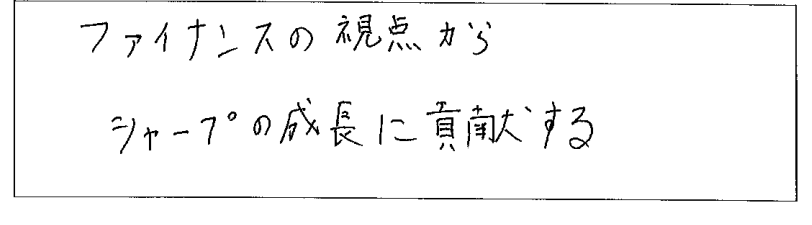 ファイナンスの視点から
シャープの成長に貢献する